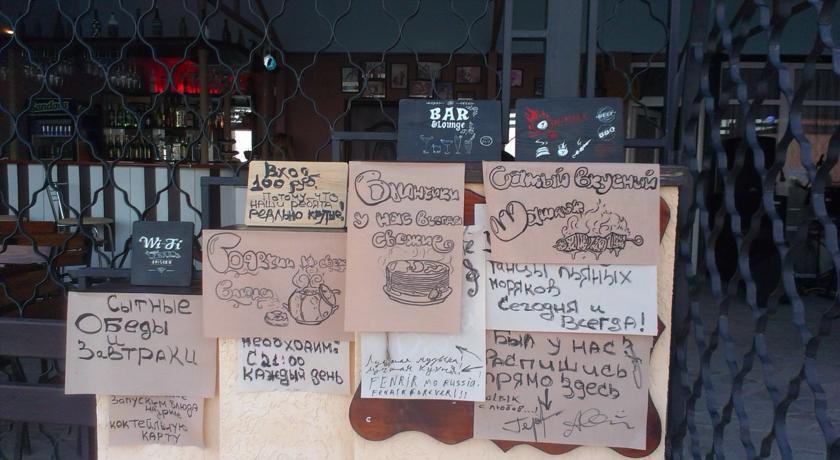 BAR
&Lounge
BEEF
BBQ
Вход
100 руб.
Потому что
наши ребята
реально крутые!
Wi-Fi
Сытные
Обеды
и
Завтраки
Запуски блюда
коктейльную
карту
необходим!
С 21:00
каждый день
Блинчики
у нас всегда
свежие
Лучшая музыка!
Лучшая кухня!
FENRIR мо RUSSIA!
FENRIR FOREVER!!!
Самый вкусный
Шашлык
Танцы пьяных
моряков
Сегодня и
Всегда!
Был у нас?
Распишись
прямо здесь
с любов...!